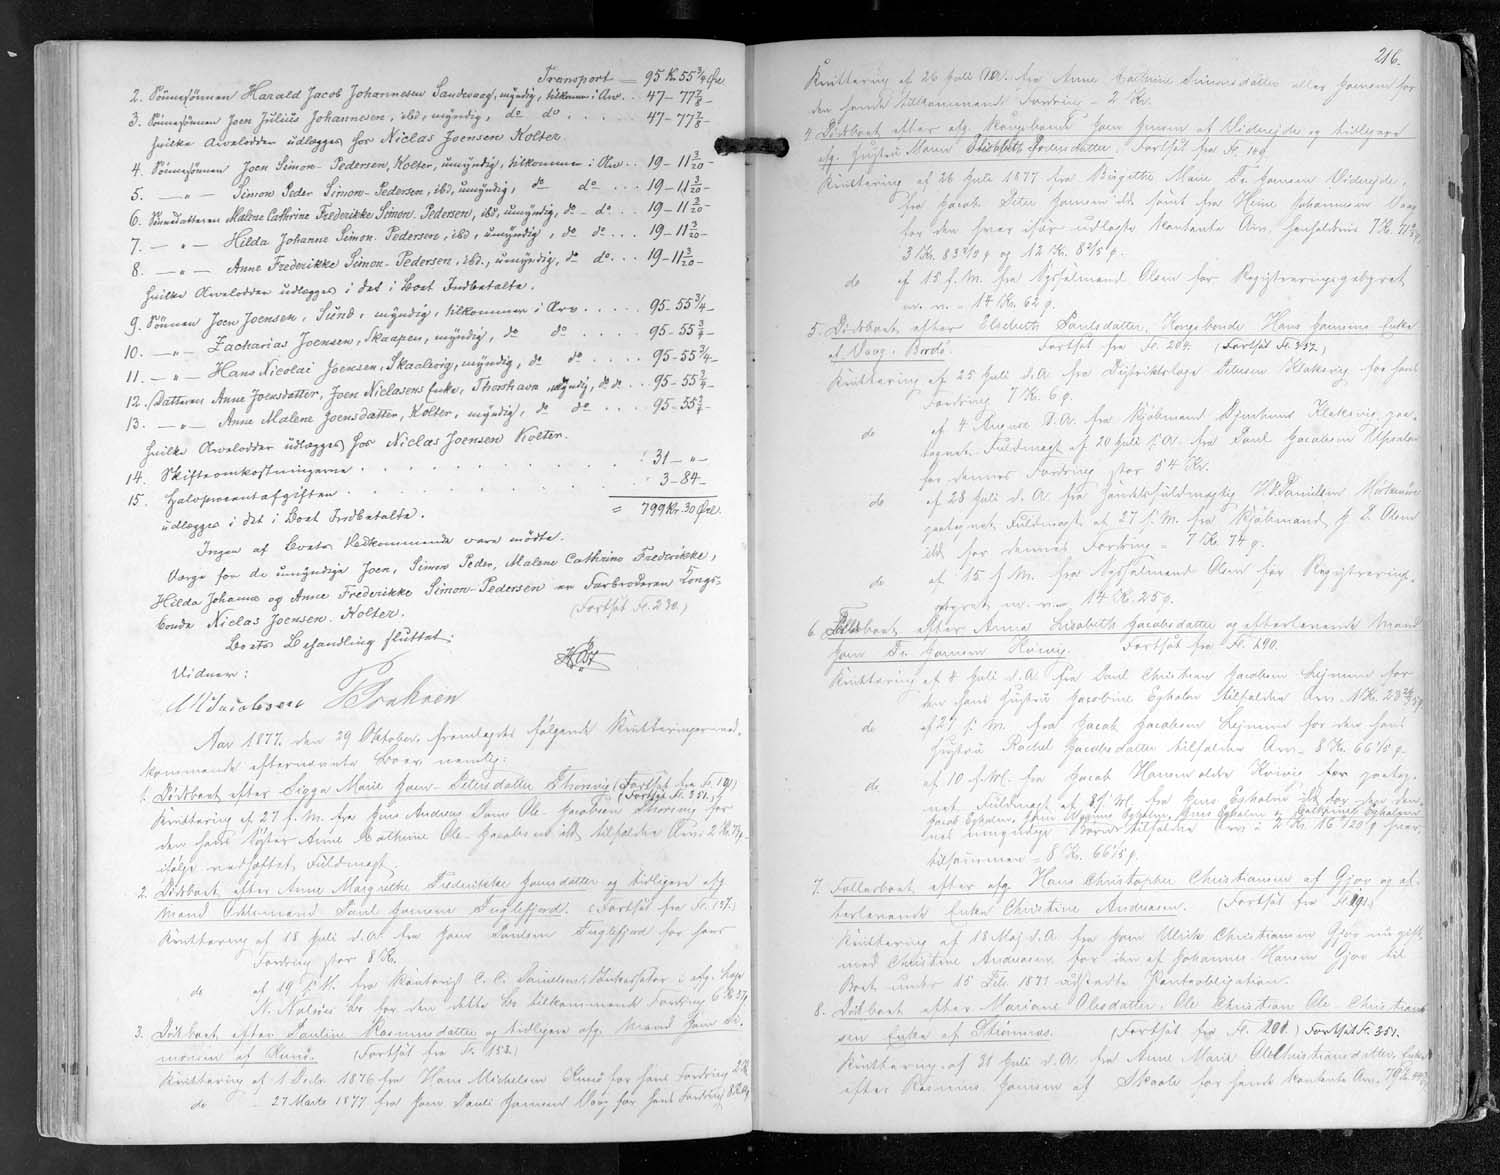 Transport = 95 Kr. 55 3/4 Øre
2. Sønnesønnen Harald Jacob Johannesen Sandevaag, myndig, tilkommer i Arv . . 47 - 77 7/8 -
3. Sønnesønnen Joen Julius Johannesen, ibd, myndig, do do . . . . . 47 - 77 7/8 -
hvilke Arvelodder udlægges hos Niclas Joensen Kolter.
4. Sønnesønnen Joen Simon-Pedersen, Kolter, umyndig, tilkommer i Arv . . 19 - 11 3/20 -
5. - " - Simon Peder Simon-Pedersen, ibd, umyndig, do do . . . 19 - 11 3/20 -
6. Sønnedatteren Malene Cathrine Frederikke Simon-Pedersen, ibd, umyndig, do - do . . . 19 - 11 3/20 -
7. - " - Hilda Johanne Simon-Pedersen, ibd, umyndig, do do . . . 19 - 11 3/20 -
8. - " - Anne Frederikke Simon-Pedersen, ibd., umyndig, do do . . . 19 - 11 3/20 -
hvilke Arvelodder udlægges i det i Boet Indbetalte.
9. Sønnen Joen Joensen, Sund, myndig, tilkommer i Arv . . . . . 95 - 55 3/4 -
10. - " - Zacharias Joensen, Skaapen, myndig, do do . . . . . 95 - 55 3/4 -
11. - " - Hans Nicolai Joensen, Skaalevig, myndig, do do . . . . 95 - 55 3/4 -
12. Datteren Anne Joensdatter, Joen Niclasens Enke, Thorshavn, myndig, do do . . . 95 - 55 3/4 -
13. - " - Anne Malene Joensdatter, Kolter, myndig, do do . . . . 95 - 55 3/4 -
hvilke Arvelodder udlægges hos Niclas Joensen Kolter.
14. Skifteomkostningerne . . . . . . . . . . . 31 - " -
15. Halvprocentafgiften . . . . . . . . . . . 3 - 84 -
udlægges i det i Boet Indbetalte. = 799 Kr. 30 Øre.
Ingen af Boets Vedkommende vare mødte.
Værge for de umyndige Joen, Simon Peder, Malene Cathrine Frederikke,
Hilda Johanne og Anne Frederikke Simon-Pedersen er Farbroderen Kongs-
bonde Niclas Joensen Kolter. (Fortsat Fl. 230.)
Boets Behandling sluttet.
Vidner:
Aar 1877, den 29 Oktober, fremlagdes følgende Kvitteringer ved-
kommende efternævnte Boer nemlig:
1. Dødsboet efter Sigga Marie Joen-Petersdatter Thorsvig (Fortsat fra Fl. 191)
(Fortsat Fl. 251.)
Kvittering af 27 f. M. fra Jens Andreas Dam Ole-Jacobsen Thorsvig for
den hans Søster Anne Cathrine Ole-Jacobsen ibd tilfaldne Arv. 2 Kr.
ifølge vedhæftet Fuldmagt.
2. Dødsboet efter Anne Margrethe Frederikke Joensdatter og tidligere afg.
Mand Odelsmand Paul Joensen Fuglefjord. (Fortsat fra Fl. 137.)
Kvittering af 18 Juli d. A. fra Joen Poulsen Fuglefjord for hans
Fordring stor 8 Kr.
do af 19 f. M. fra Kantorist C. C. Danielsen, Inkassator i afg.
N. Nolsøes Bo for den dette Bo tilkommende Fordring 6 Kr. 37
3. Dødsboet efter Pauline Rasmusdatter og tidligere afg. Mand Joen Si-
monsen af Kunø. (Fortsat fra Fl. 153.)
Kvittering af 1 Decbr. 1876 fra Hans Michelsen Kunø for hans Fordring 2 Kr.
do - 27 Marts 1877 fra Joen Pauli Joensen Vaag for hans Fordring
216.
Kvittering af 26 Juli d. A. fra Anne Cathrine Simonsdatter eller Joensen for
den hende tilkommende Fordring - 2 Kr.
4. Dødsboet efter afg. Kongsbonde Joen Joensen af Viderejde og tidligere
afg. Hustru Maren Elisabeth Poulsdatter. Fortsat fra Fl. 149.
Kvittering af 26 Juli 1877 fra Birgitte Marie Joensen Viderejde,
fra Jacob Peter Joensen ibd samt fra Heine Johannesen Vaag
for den hver især udlagte kontante Arv, henholdsvis 7 Kr.
31 Kr. 83 2/5 q og 12 Kr. 8 2/5 q.
do af 15 f. M. fra Sysselmand Olsen for Registreringsgebyret
m. v. - 14 Kr. 62 q.
5. Dødsboet efter Elsebeth Poulsdatter, Kongsbonde Hans Joensens Enke
af Vaag, Bordø. Fortsat fra Fl. 204. (Fortsat Fl. 357.)
Kvittering af 25 Juli d. A. fra Distriktslæge Petersen Klaksvig for hans
Fordring 7 Kr. 6 q.
do af 4 August d. A. fra Kjøbmand Djurhuus Klaksvig paa-
tegnet Fuldmagt af 20 Juli s. A. fra Paul Jacobsen
for dennes Fordring stor 54 Kr.
do af 28 Juli d. A. fra Handelsfuldmægtig H. P. Danielsen
paategnet Fuldmagt af 27 s. M. fra Kjøbmand J. L. Olsen
ibd for dennes Fordring - 7 Kr. 74 q.
do af 15 f. M. fra Sysselmand Olsen for Registrerings-
gebyret m. v. - 14 Kr. 25 q.
6. Fællesboet efter Anna Lisabeth Jacobsdatter og efterlevende Mand
Joen Joensen Kvivig. Fortsat fra Fl. 190.
Kvittering af 8 Juli d. A. fra Paul Christian Jacobsen Lejnum for
den hans Hustru Jacobine Egholm tilfaldne Arv. 1 Kr.
do af 27 s. M. fra Jacob Jacobsen Lejnum for den hans
Hustru Rachel Jacobsdatter tilfaldne Arv - 8 Kr. 66 1/5 q.
do af 10 f. M. fra Jacob Hansen ældre Kvivig for paateg-
net Fuldmagt af 8 f. M. fra Jens Egholm, ibd for den den-
nes umyndige Børn tilfaldne Arv à 2 Kr. 16 11/20 q hver,
tilsammen - 8 Kr. 66 1/5 q.
7. Fællesboet efter afg. Hans Christopher Christiansen af Gjov og ef-
terlevende Enke Christine Andreasen. (Fortsat fra Fl. 191.)
Kvittering af 18 Maj d. A. fra Joen Ulrik Christiansen Gjov nu gift
med Christine Andreasen, for den af Johannes Hansen Gjov til
Boet under 15 Feb. 1871 udstedte Panteobligation.
8. Dødsboet efter Mariane Olesdatter, Ole Christian Ole-Christian-
sen Enke af Strømnæs. (Fortsat fra Fl. 201.) Fortsat Fl. 351.
Kvittering af 31 Juli d. A. fra Anne Marie OleChristiansdatter, Enke
efter Rasmus Joensen af Skaale for hendes kontante Arv.